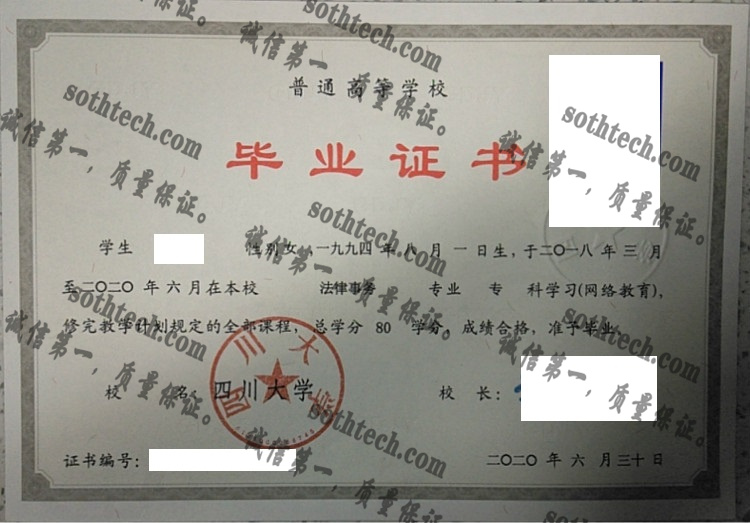 普通高等学校
毕业证书
学生 性别女，一九九四年八月一日生，于二〇一八年三月
至二〇二〇年六月在本校 法律事务 专业 专科学习(网络教育)，
修完教学计划规定的全部课程，总学分 80 学分，成绩合格，准予毕业。
校 名：四川大学 校 长：
证书编号： 二〇二〇年六月三十日
四川大学
sothtech.com
诚信第一，质量保证。
sothtech.com
诚信第一，质量保证。
sothtech.com
诚信第一，质量保证。
sothtech.com
诚信第一，质量保证。
sothtech.com
诚信第一，质量保证。
sothtech.com
诚信第一，质量保证。
sothtech.com
诚信第一，质量保证。